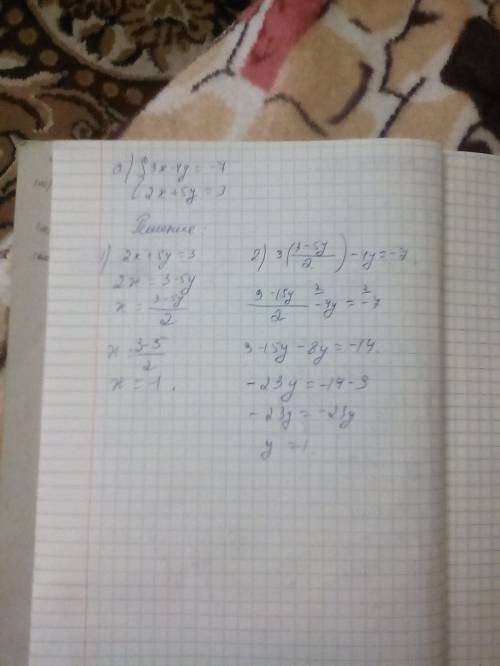 а) { 3x-4y = -7
{ 2x+5y = 3
Решение.
1) 2x+5y = 3
2x = 3-5y
x = (3-5y)/2
x = (3-5)/2
x = -1.
2) 3((3-5y)/2) - 4y = -7
(9-15y)/2 - 4y = -7
9-15y-8y = -14.
-23y = -14-9
-23y = -23y
y = 1